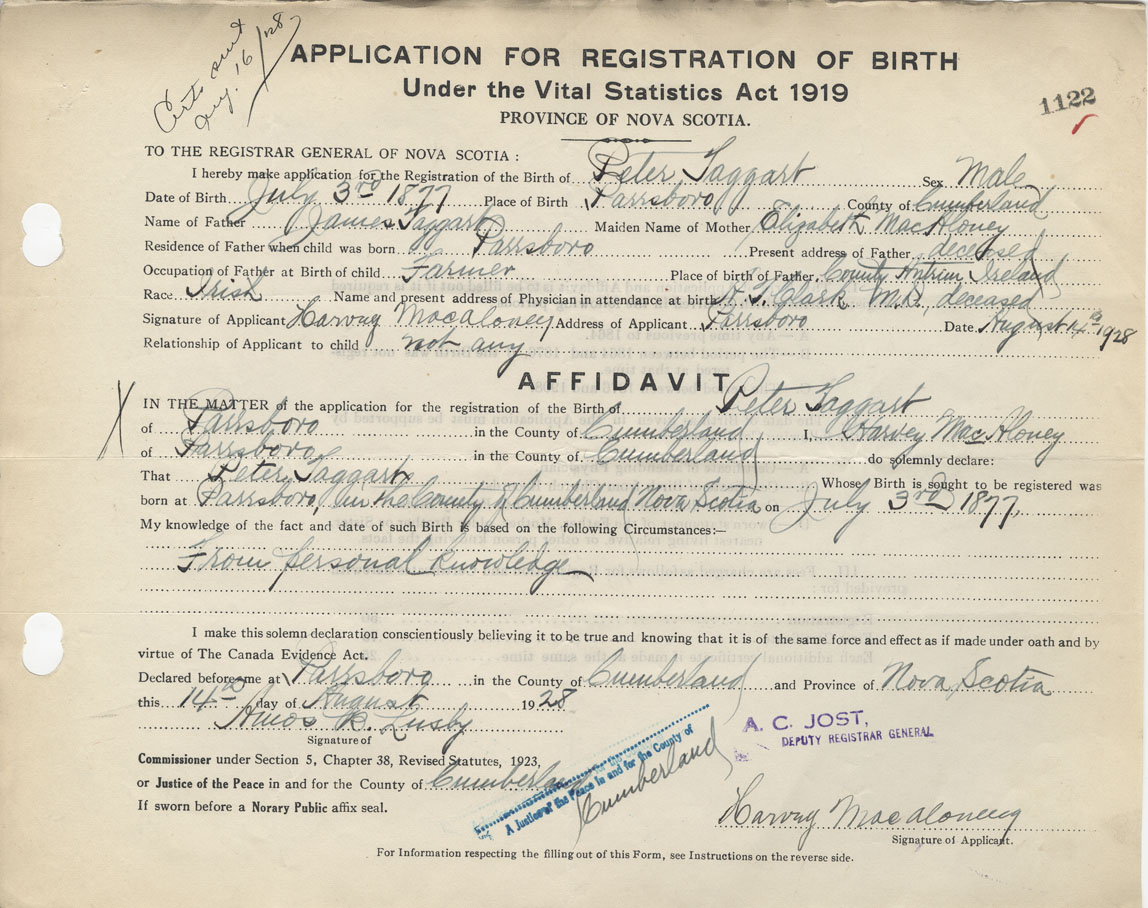 Certs sent
Aug. 16/28
APPLICATION FOR REGISTRATION OF BIRTH
Under the Vital Statistics Act 1919
PROVINCE OF NOVA SCOTIA.
1122
TO THE REGISTRAR GENERAL OF NOVA SCOTIA :
I hereby make application for the Registration of the Birth of Peter Taggart Sex Male
Date of Birth July 3rd 1877 Place of Birth Parrsboro County of Cumberland
Name of Father James Taggart Maiden Name of Mother Elizabeth MacAloney
Residence of Father when child was born Parrsboro Present address of Father deceased
Occupation of Father at Birth of child Farmer Place of birth of Father County Antrim, Ireland
Race Irish Name and present address of Physician in attendance at birth Clark M.D., deceased
Signature of Applicant Harvey Macaloney Address of Applicant Parrsboro Date August 14th 1928
Relationship of Applicant to child not any
AFFIDAVIT
X
IN THE MATTER of the application for the registration of the Birth of Peter Taggart
of Parrsboro in the County of Cumberland I, Harvey MacAloney
of Parrsboro in the County of Cumberland do solemnly declare:
That Peter Taggart Whose Birth is sought to be registered was
born at Parrsboro, in the County of Cumberland Nova Scotia on July 3rd 1877,
My knowledge of the fact and date of such Birth is based on the following Circumstances:—
From personal knowledge
I make this solemn declaration conscientiously believing it to be true and knowing that it is of the same force and effect as if made under oath and by
virtue of The Canada Evidence Act.
Declared before me at Parrsboro in the County of Cumberland and Province of Nova Scotia
this 14th day of August 1928
Amos R. Lusby
Signature of
A. C. JOST,
DEPUTY REGISTRAR GENERAL
Commissioner under Section 5, Chapter 38, Revised Statutes, 1923,
or Justice of the Peace in and for the County of Cumberland
A Justice of the Peace in and for the County of
Cumberland
If sworn before a Norary Public affix seal.
Harvey Macaloney
Signature of Applicant.
For Information respecting the filling out of this Form, see Instructions on the reverse side.